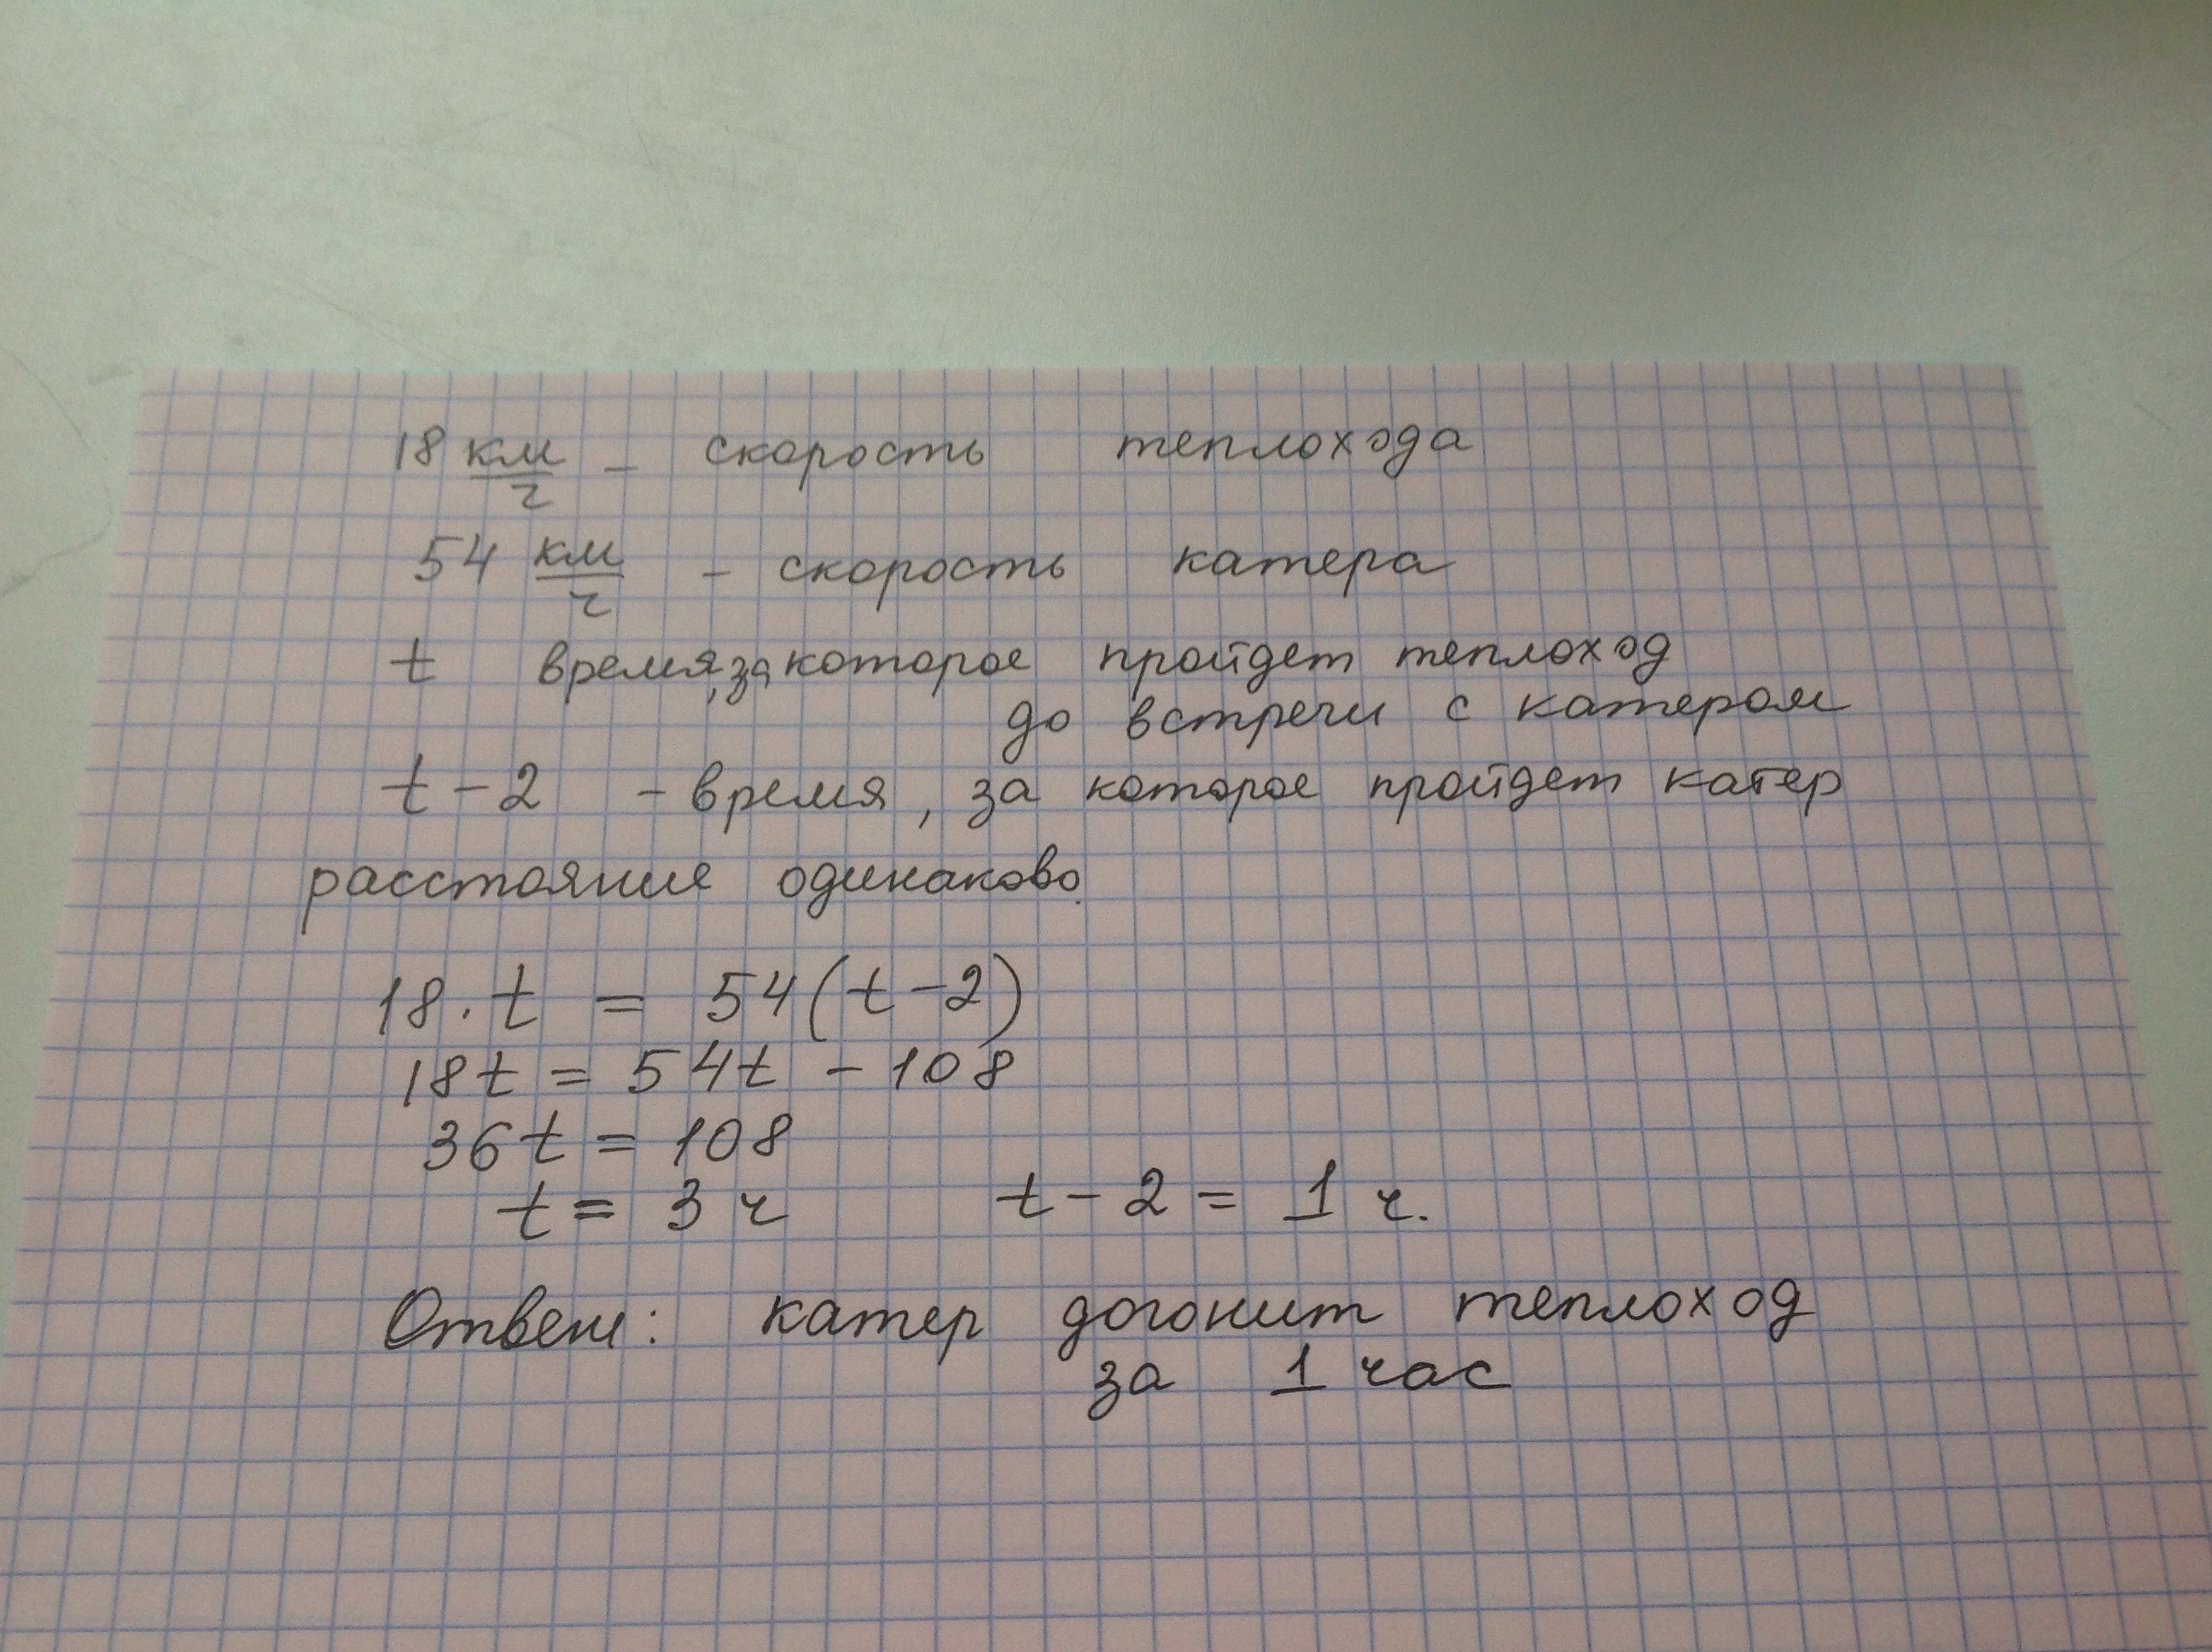 18 км/ч – скорость теплохода
54 км/ч – скорость катера
t время, за которое пройдет теплоход
до встречи с катером
t – 2 – время, за которое пройдет катер
расстояние одинаково.
18 · t = 54(t – 2)
18t = 54t – 108
36t = 108
t = 3 ч t – 2 = 1 ч.
Ответ: катер догонит теплоход
за 1 час